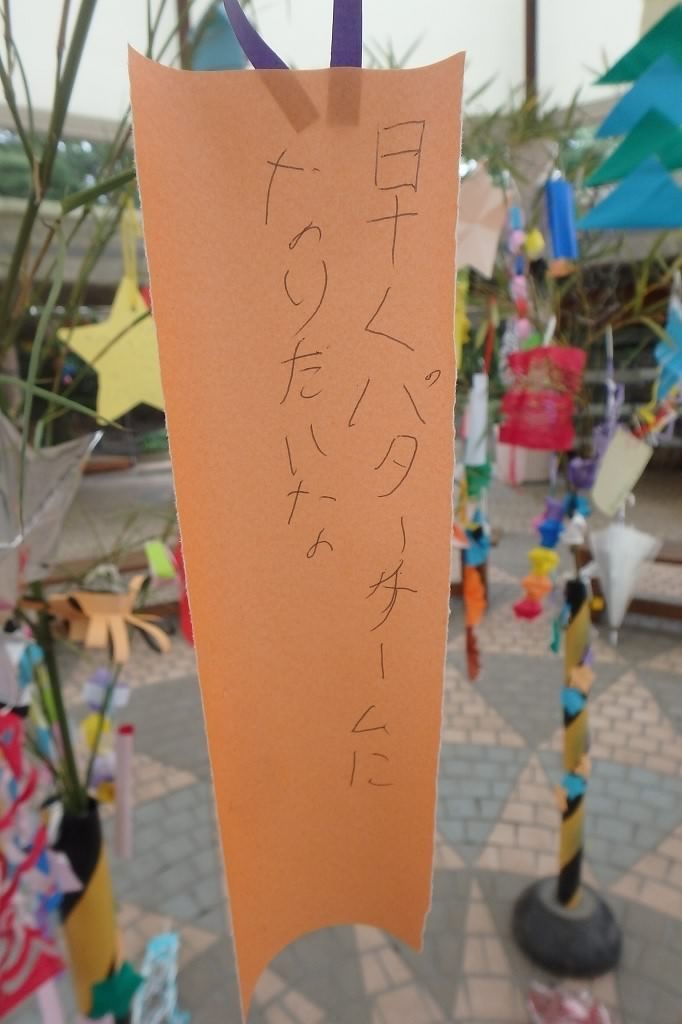 早くパターチームに
なりだいな